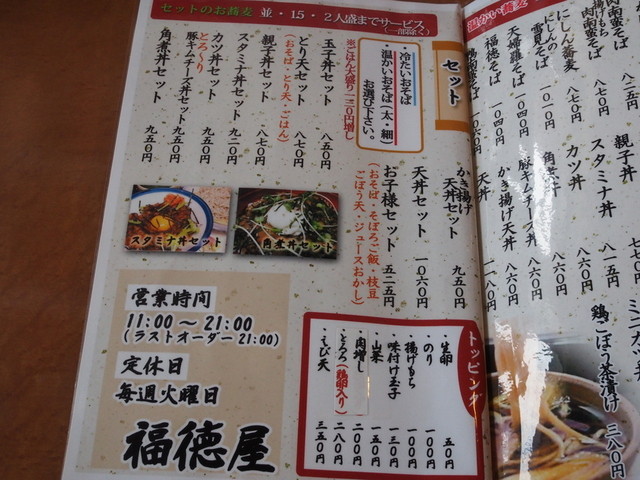 温かい蕎麦
肉南蛮そば
揚げもち
にしん蕎麦
にしんの
雪見そば
天婦羅そば
福徳そば
八七〇円
八七〇円
一〇一〇円
一〇四〇円
一〇四〇円
親子丼
スタミナ丼
カツ丼
角煮丼
豚キムチ天丼
かき揚げ天丼
天丼
八一五円
八六〇円
八六〇円
八六〇円
鶏ごぼう茶漬け
三八〇円
セットのお蕎麦 並・1.5・2人盛までサービス
(一部除く)
セット
・冷たいおそば
・温かいおそば(太・細)
お選び下さい。
※ごはん大盛り一三〇円増し
玉子丼セット 八五〇円
とり天セット 八七〇円
(おそば・とり天・ごはん)
親子丼セット 八七〇円
スタミナ丼セット 九二〇円
カツ丼セット 九五〇円
とろ〜り
豚キムチーズ丼セット 九五〇円
角煮丼セット 九五〇円
かき揚げ
天丼セット 九五〇円
天丼セット 一〇六〇円
お子様セット 五二五円
(おそば・そぼろご飯・枝豆
ごぼう天・ジュースおかし)
スタミナ丼セット
角煮丼セット
トッピング
・生卵 五〇円
・のり 一〇〇円
・揚げもち 一〇〇円
・味付け玉子 一三〇円
・山菜 一五〇円
・肉増し 二〇〇円
・とろろ(鶏卵入り) 二八〇円
・えび天 三五〇円
営業時間
11:00〜21:00
(ラストオーダー 21:00)
定休日
毎週火曜日
福徳屋